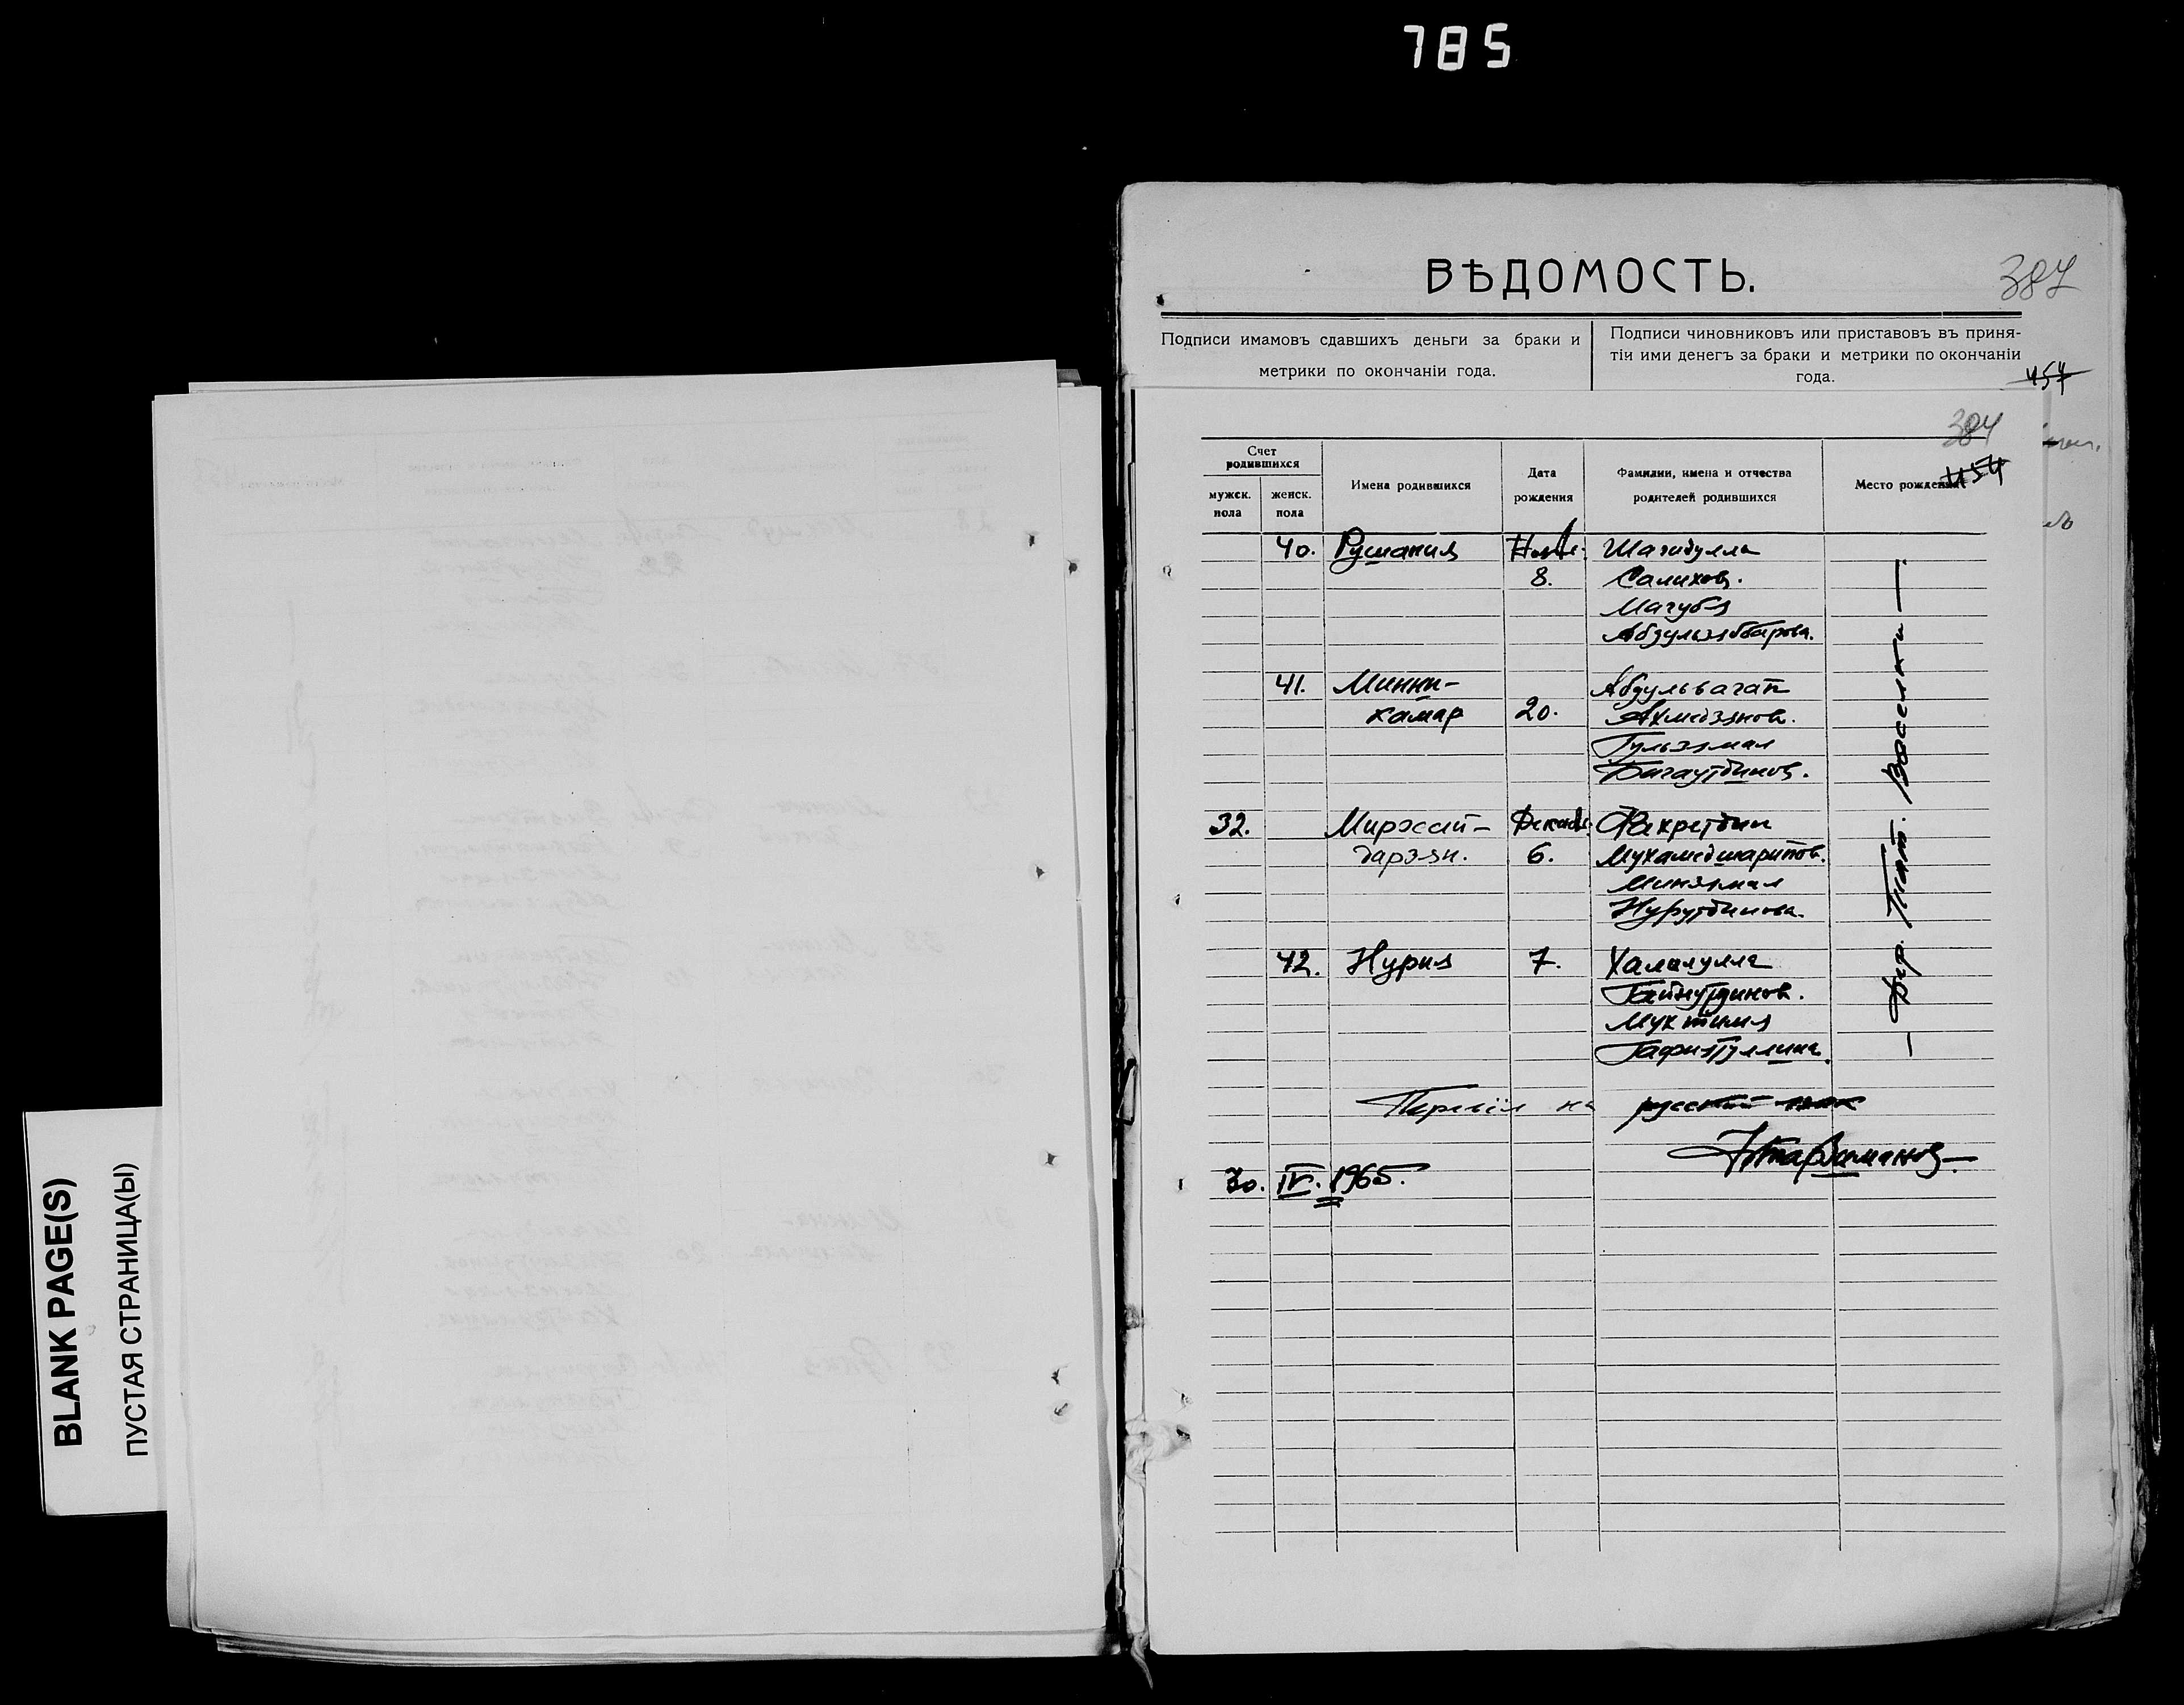 785
BLANK PAGE(S)
ПУСТАЯ СТРАНИЦА(Ы)
ВѢДОМОСТЬ.
387
Подписи имамовъ сдавшихъ деньги за браки и
метрики по окончаніи года.
Подписи чиновниковъ или приставовъ въ приня-
тіи ими денегъ за браки и метрики по окончаніи
года.
457
384
454
Счет
родившихся
мужск.
пола
женск.
пола
Имена родившихся
Дата
рождения
Фамилии, имена и отчества
родителей родившихся
Место рождения
40. Рушания Нояб. Шагидулла
8. Салихов.
Магубя
Абдулзяббарова.
41. Минни- Абдулвагап
камар 20. Ахмедзянов.
Гульзямал
Багаутдинов.
32. Мирсаит- Декаб. Фахретдин
дарзян. 6. Мухамедшарипов.
Минзямал
Нурутдинова.
42. Нурия 7. Халилулла
Гайнутдинов.
Мухтимя
Гафиятуллина.
— Дер. Тат. —
Перевёл на русский язык
30. IV. 1965.